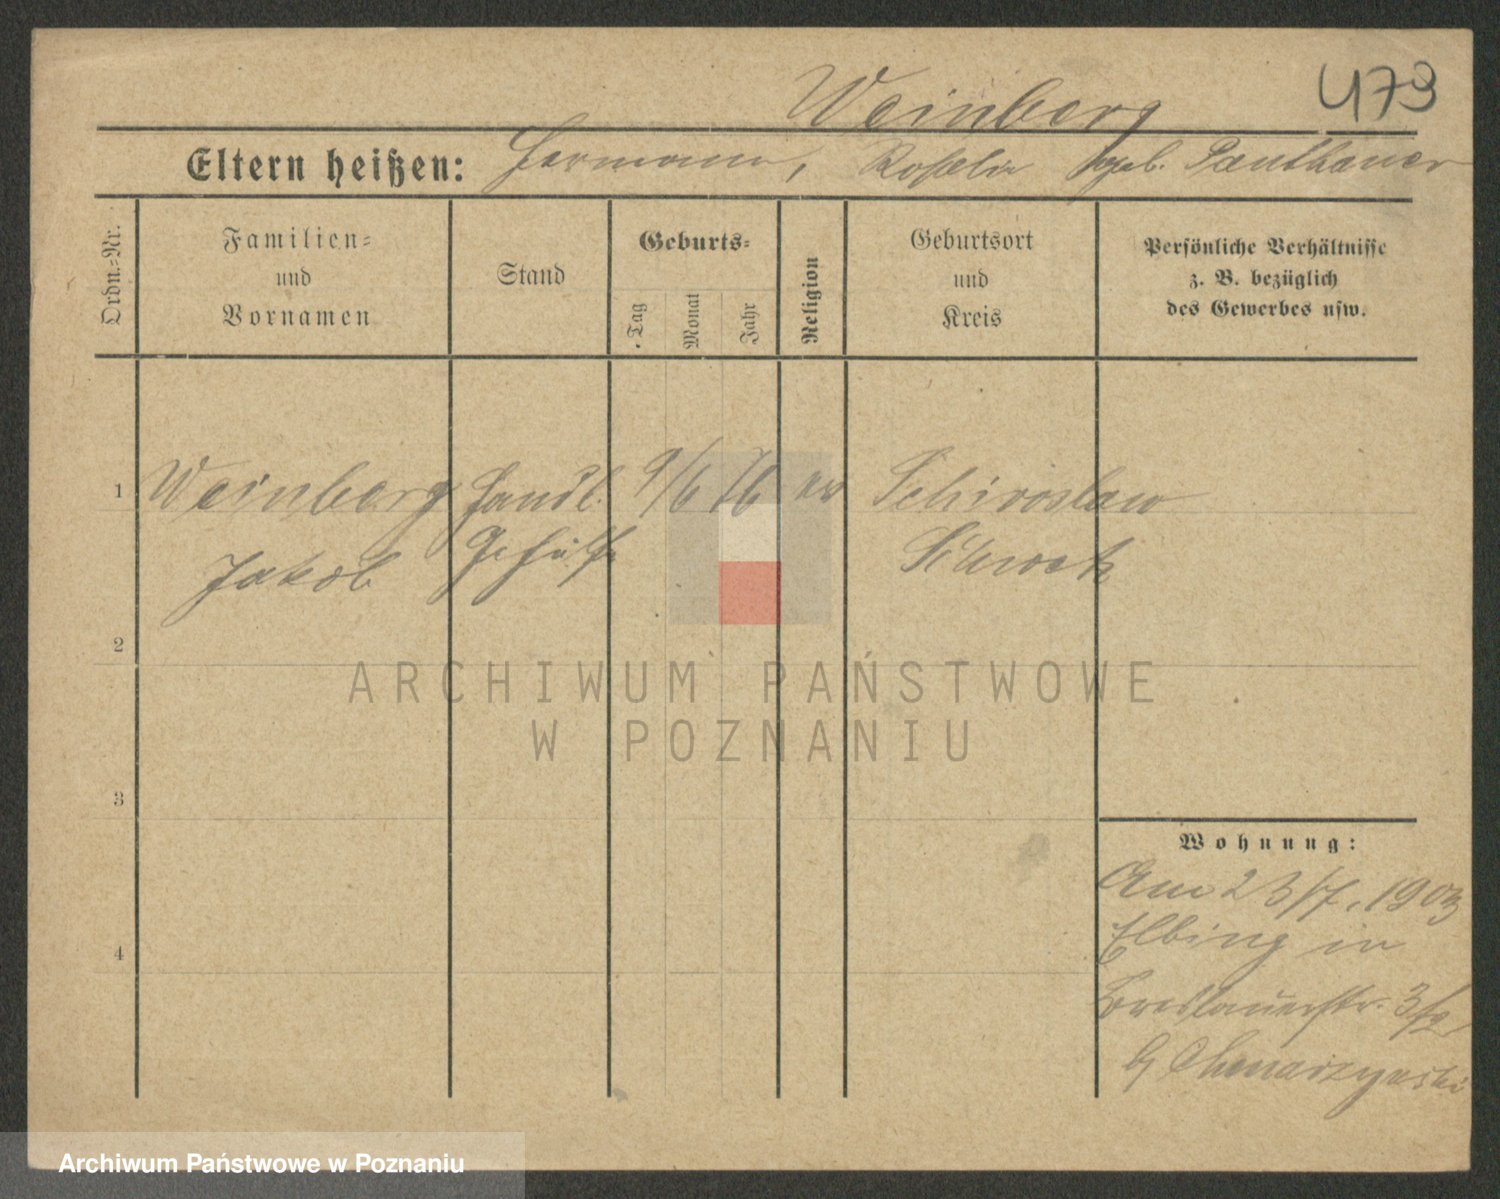 473
Weinberg
Eltern heißen: Hermann, geb.
Ordn.-Nr.
Familien-
und
Vornamen
Stand
Geburts-
Tag
Monat
Jahr
Religion
Geburtsort
und
Kreis
Persönliche Verhältnisse
z. B. bezüglich
des Gewerbes usw.
1 Weinberg Handl. 9/6 76 Schiroslaw
Jakob Gehülfe Schwetz
2
ARCHIWUM PAŃSTWOWE
W POZNANIU
3
4
Wohnung:
Am 23/7. 1903
Elbing in
Breslauerstr.
Archiwum Państwowe w Poznaniu